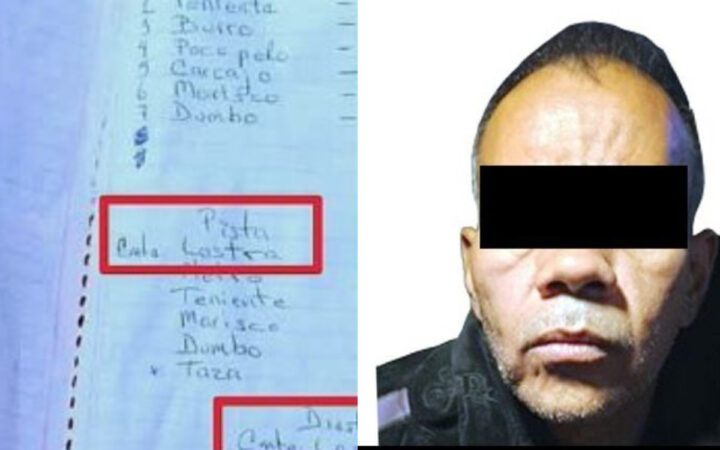 2 Teniente
3 Burro
4 Poco pelo
5 Carcajo
6 Marisco
7 Dumbo
8
9
Pista
Cmte Lastra
Metro
Teniente
Marisco
Dumbo
Taza
Cmte